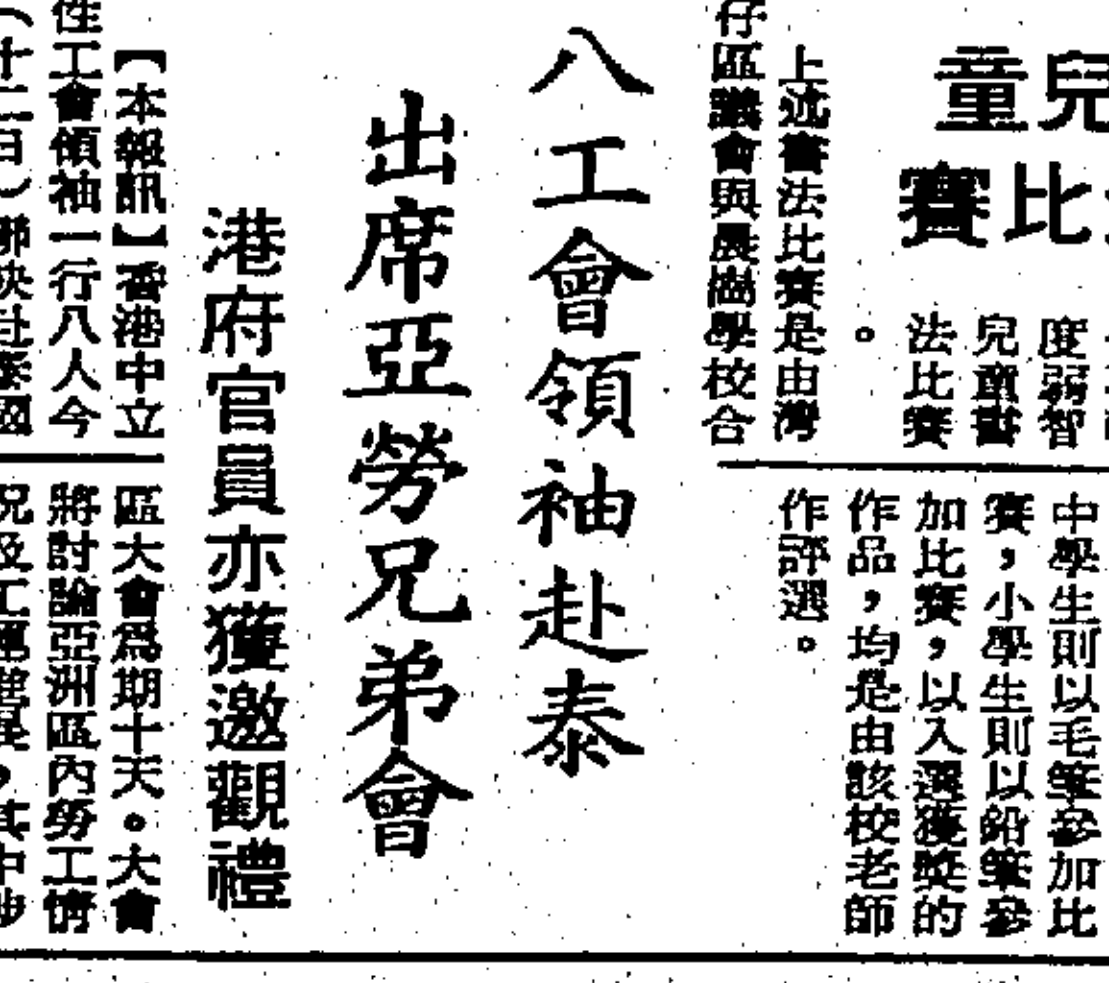 兒童
比賽
度弱智
兒童書
法比賽
。
上述書法比賽是由灣
仔區議會與晨崗學校合
中學生則以毛筆參加比
賽，小學生則以鉛筆參
加比賽，以入選獲獎的
作品，均是由該校老師
作評選。
八工會領袖赴泰
出席亞勞兄弟會
港府官員亦獲邀觀禮
【本報訊】香港中立
性工會領袖一行八人今
（十二日）聯袂赴泰國
區大會爲期十天。大會
將討論亞洲區內勞工情
況及工運進展，其中涉